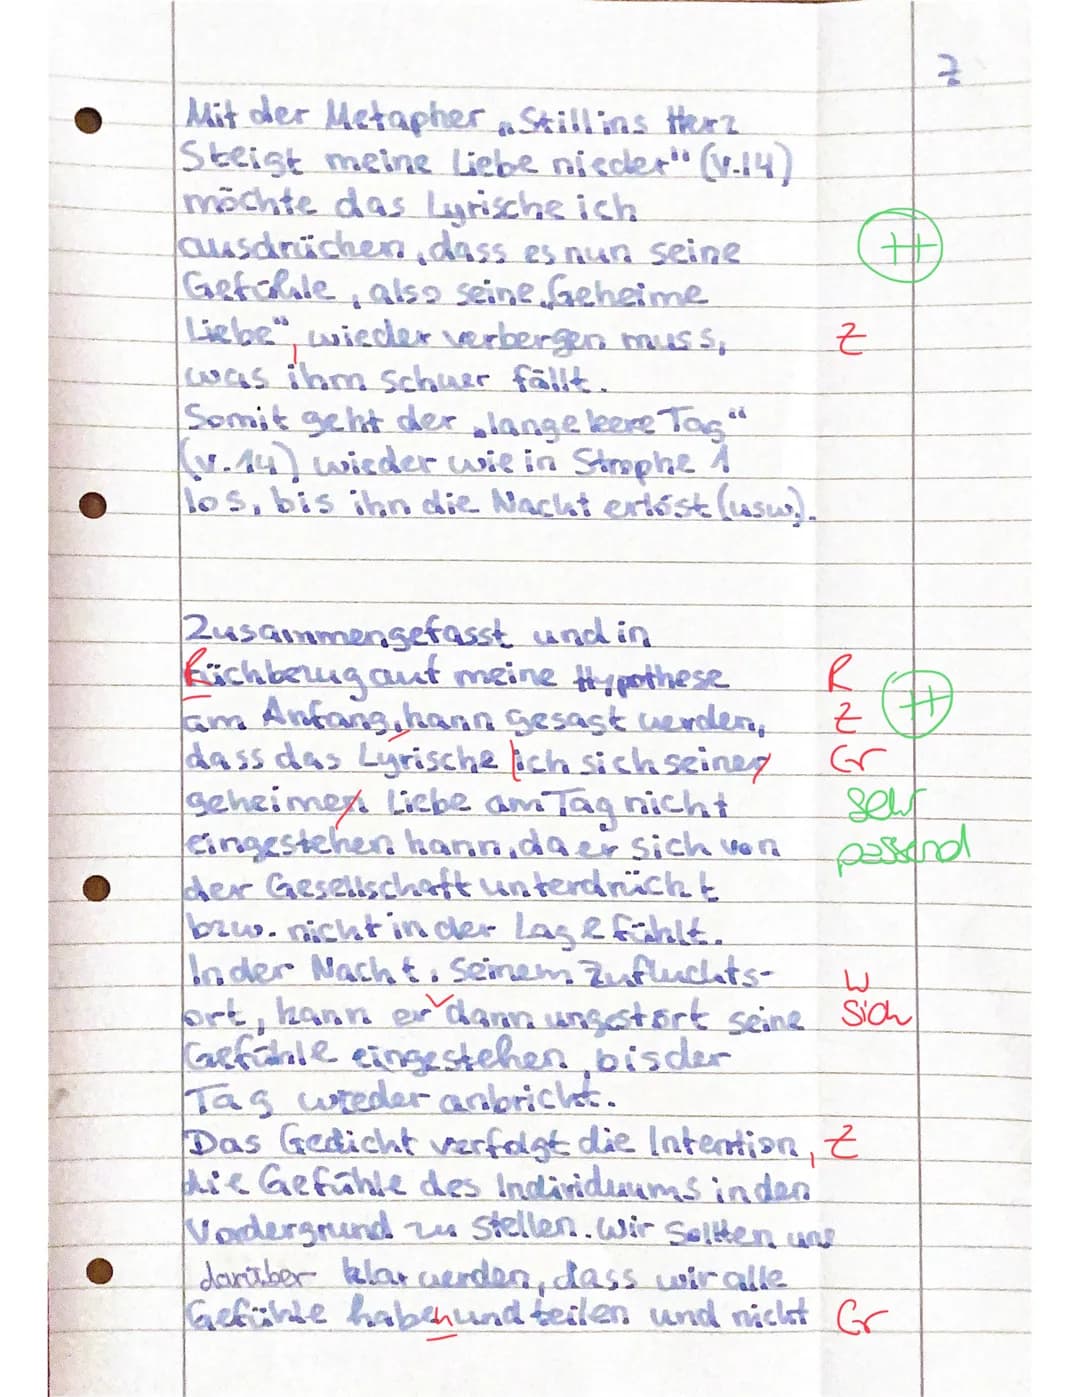 7
Mit der Metapher „Still ins Herz
Steigt meine Liebe nieder" (V.14)
möchte das Lyrische ich
ausdrücken, dass es nun seine
Gefühle, also seine „Geheime
Liebe", wieder verbergen muss, Z
was ihm schwer fällt.
Somit geht der „lange leere Tag"
(V.14) wieder wie in Strophe 1
los, bis ihn die Nacht erlöst (usw.).
++
Zusammengefasst und in
Rückbezug auf meine Hypothese R
am Anfang, kann gesagt werden, Z
dass das Lyrische ich sich seiner Gr
geheimen Liebe am Tag nicht sehr
eingestehen kann, da er sich von passend
der Gesellschaft unterdrückt
bzw. nicht in der Lage fühlt.
++
In der Nacht, seinem Zufluchts- W
ort, kann er dann ungestört seine sich
Gefühle eingestehen, bis der
Tag wieder anbricht.
Das Gedicht verfolgt die Intention, Z
die Gefühle des Individuums in den
Vordergrund zu stellen. Wir sollten uns
darüber klar werden, dass wir alle
Gefühle haben und teilen und nicht Gr